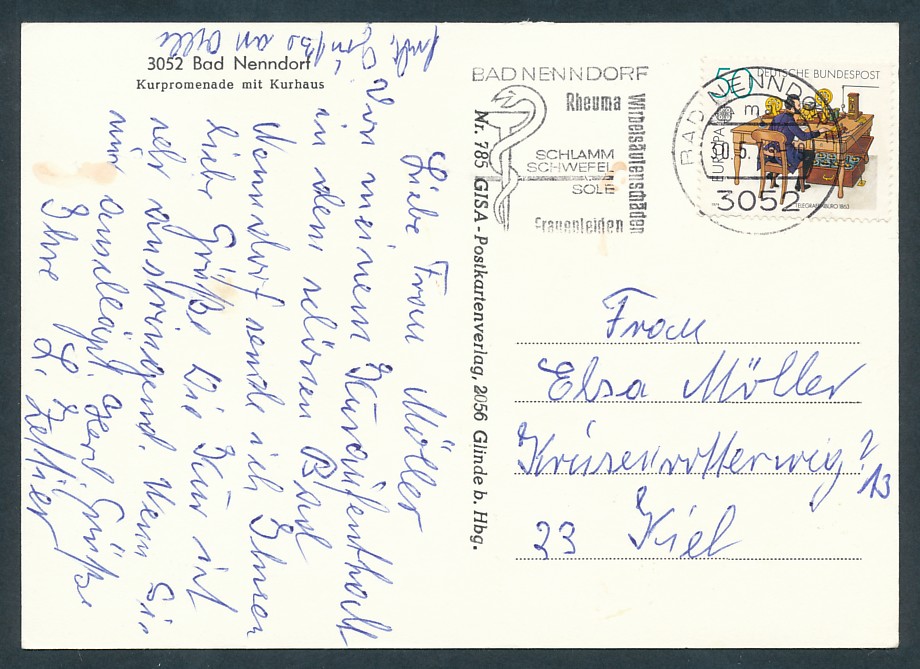 3052 Bad Nenndorf
Kurpromenade mit Kurhaus
Liebe Frau Möller
Von meinem Kuraufenthalt
in dem schönen Bad
Nenndorf sende ich Ihnen
liebe Grüße. Die Kur ist
sehr anstrengend. Wenn Sie
nur anschlägt. Herzl. Grüße
Ihre
Nr. 785 GISA - Postkartenverlag, 2056 Glinde b. Hbg.
BAD NENNDORF
Rheuma
Wirbelsäulenschäden
SCHLAMM
SCHWEFEL
SOLE
Frauenleiden
BAD NENNDORF
3052
50 DEUTSCHE BUNDESPOST
EUROPA
TELEGRAFENBÜRO 1863
Frau
Elsa Möller
13
23 Kiel